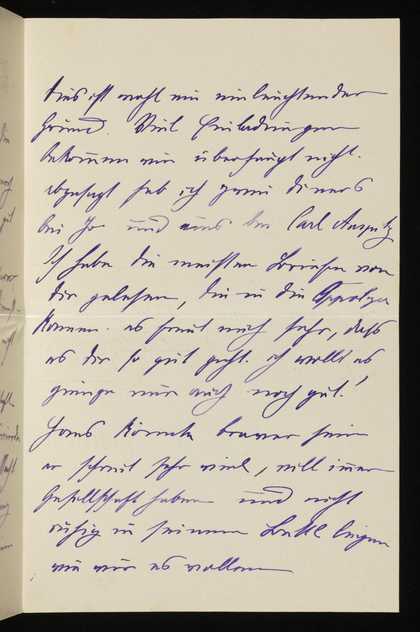 dies ist wohl ein einleuchtender
Grund. Viel Einladungen
bekommen wir überhaupt nicht.
abgesagt hab ich zwei diners
bei Jo und eins bei Carl Auspitz
Ich habe die meisten Briefe von
dir gelesen, die in die
kommen. es freut mich sehr, daß
es dir so gut geht. ich wollt es
ginge mir auch noch gut!
Hans könnte braver sein
er schreit sehr viel, will immer
Gesellschaft haben und nicht
ruhig in seinem Bettl liegen
wie wir es wollen